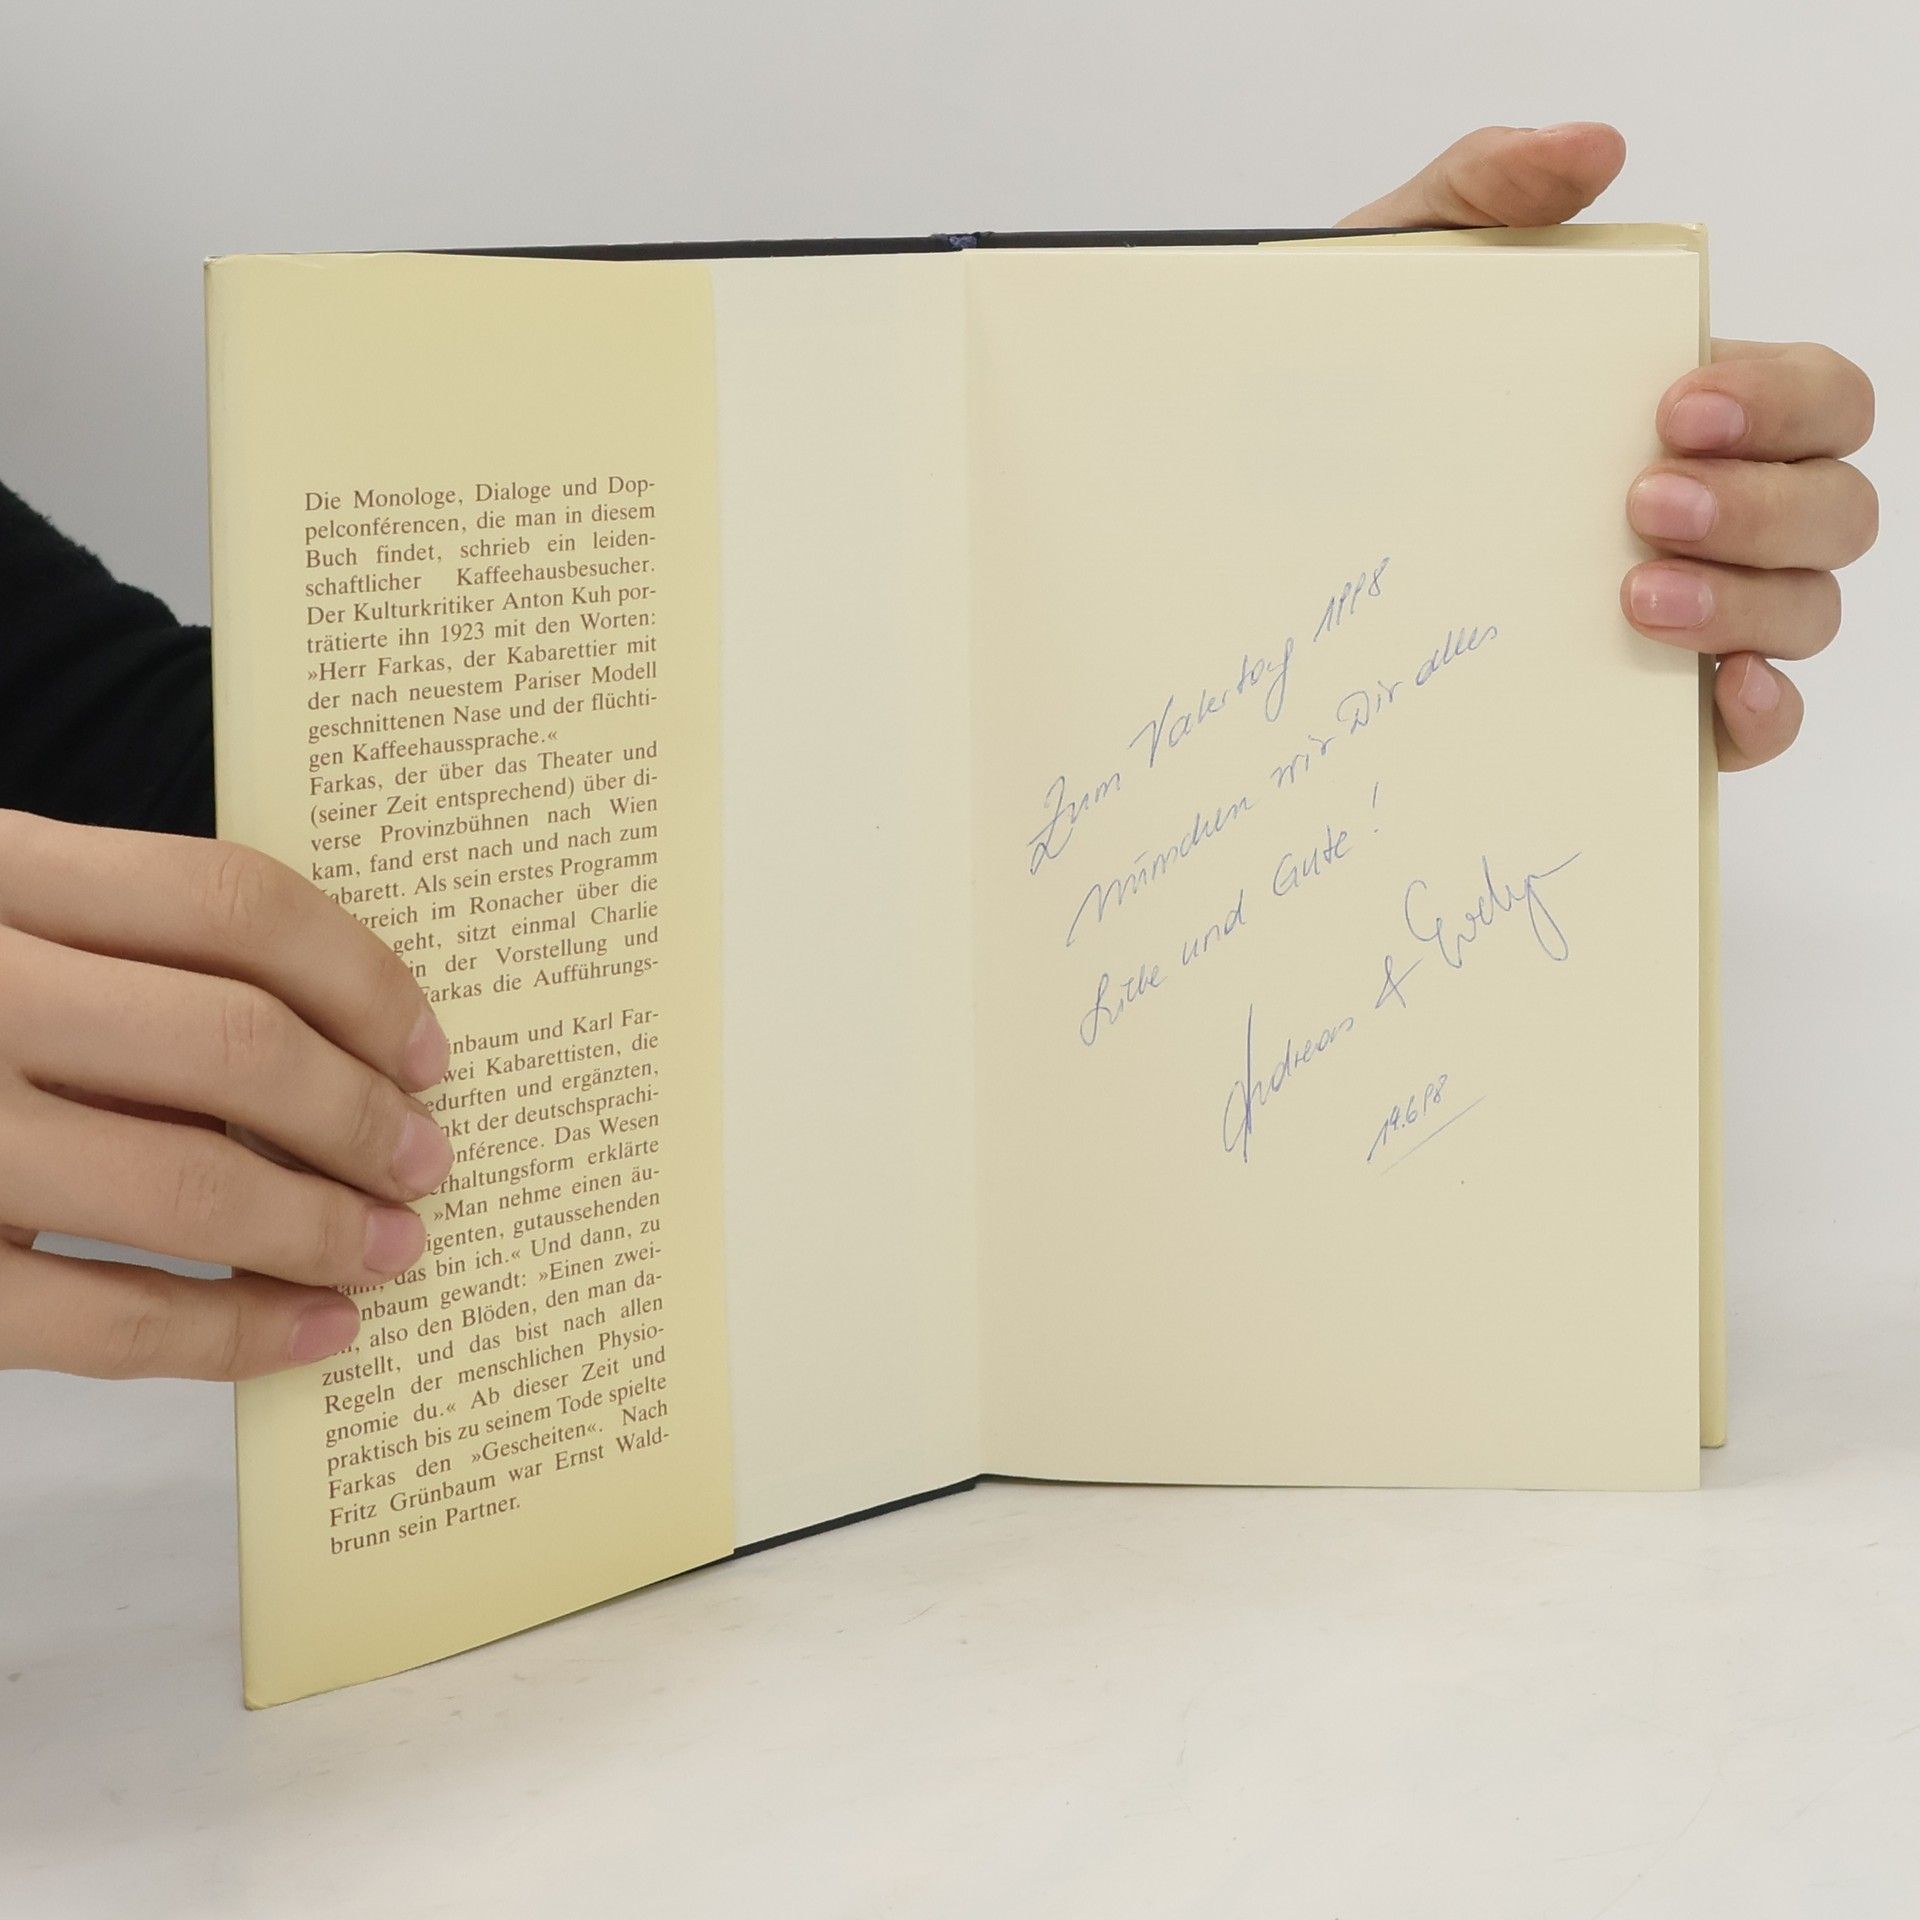 Die Monologe, Dialoge und Dop-
pelconférencen, die man in diesem
Buch findet, schrieb ein leiden-
schaftlicher Kaffeehausbesucher.
Der Kulturkritiker Anton Kuh por-
trätierte ihn 1923 mit den Worten:
»Herr Farkas, der Kabarettier mit
der nach neuestem Pariser Modell
geschnittenen Nase und der flüchti-
gen Kaffeehaussprache.«
Farkas, der über das Theater und
(seiner Zeit entsprechend) über di-
verse Provinzbühnen nach Wien
kam, fand erst nach und nach zum
abarett. Als sein erstes Programm
greich im Ronacher über die
geht, sitzt einmal Charlie
in der Vorstellung und
Farkas die Aufführungs-
inbaum und Karl Far-
wei Kabarettisten, die
edurften und ergänzten,
nkt der deutschsprachi-
nférence. Das Wesen
rhaltungsform erklärte
»Man nehme einen äu-
igenten, gutaussehenden
das bin ich.« Und dann, zu
nbaum gewandt: »Einen zwei-
also den Blöden, den man da-
zustellt, und das bist nach allen
Regeln der menschlichen Physio-
gnomie du.« Ab dieser Zeit und
praktisch bis zu seinem Tode spielte
Farkas den »Gescheiten«. Nach
Fritz Grünbaum war Ernst Wald-
brunn sein Partner.
Zum Vatertag 1998
wünschen wir Dir alles
Liebe und Gute!
Andreas & Evelyn
14.6.98